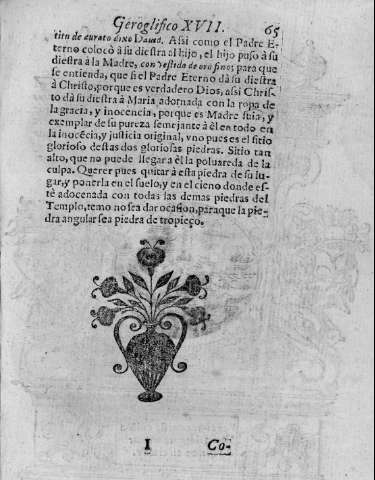 Geroglifico XVII. 65
titu de aurato dixo Dauid. Assi como el Padre E-
terno colocò à su diestra al hijo, el hijo puso à su
diestra à la Madre, con vestido de oro fino; para que
se entienda, que si el Padre Eterno dà su diestra
à Christo, porque es verdadero Dios, assi Chris-
to dà su diestra à Maria adornada con la ropa de
la gracia, y inocencia, porque es Madre suia, y
exemplar de su pureza semejante à èl en todo en
la inocẽcia, y justicia original, vno pues es el sitio
glorioso destas dos gloriosas piedras. Sitio tan
alto, que no puede llegar a èl la poluareda de la
culpa. Querer pues quitar à esta piedra de su lu-
gar, y ponerla en el suelo, y en el cieno donde es-
tè adocenada con todas las demas piedras del
Templo, temo no sea dar ocasion, para que la pie-
dra angular sea piedra de tropieço.
I Co-